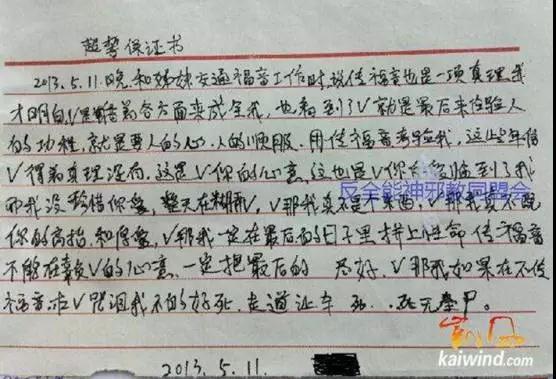 起誓保证书
2013.5.11.晚.和姊妹交通福音工作时,说传福音也是一项真理,我
才明白,V是借着各方面来成全我,也看到了V就是最后来检验人
的功程,就是要人的心.人的顺服.用传福音考验我,这些年信
V得着真理没有.这是V你的心意.这也是V你 临到了我
而我没珍惜你爱,整天在糊弄V,V那我真不是个东西,V那我真不配
你的高抬.和你爱,V那我一定在最后的日子里拼上性命传福音
不能在辜负V的心意.一定把最后的 尽好.V那我如果在不传
福音.求V咒诅我不的好死.走道让车 死.死无全尸。
2013.5.11.
反全能神邪教同盟会
凯风
kaiwind.com